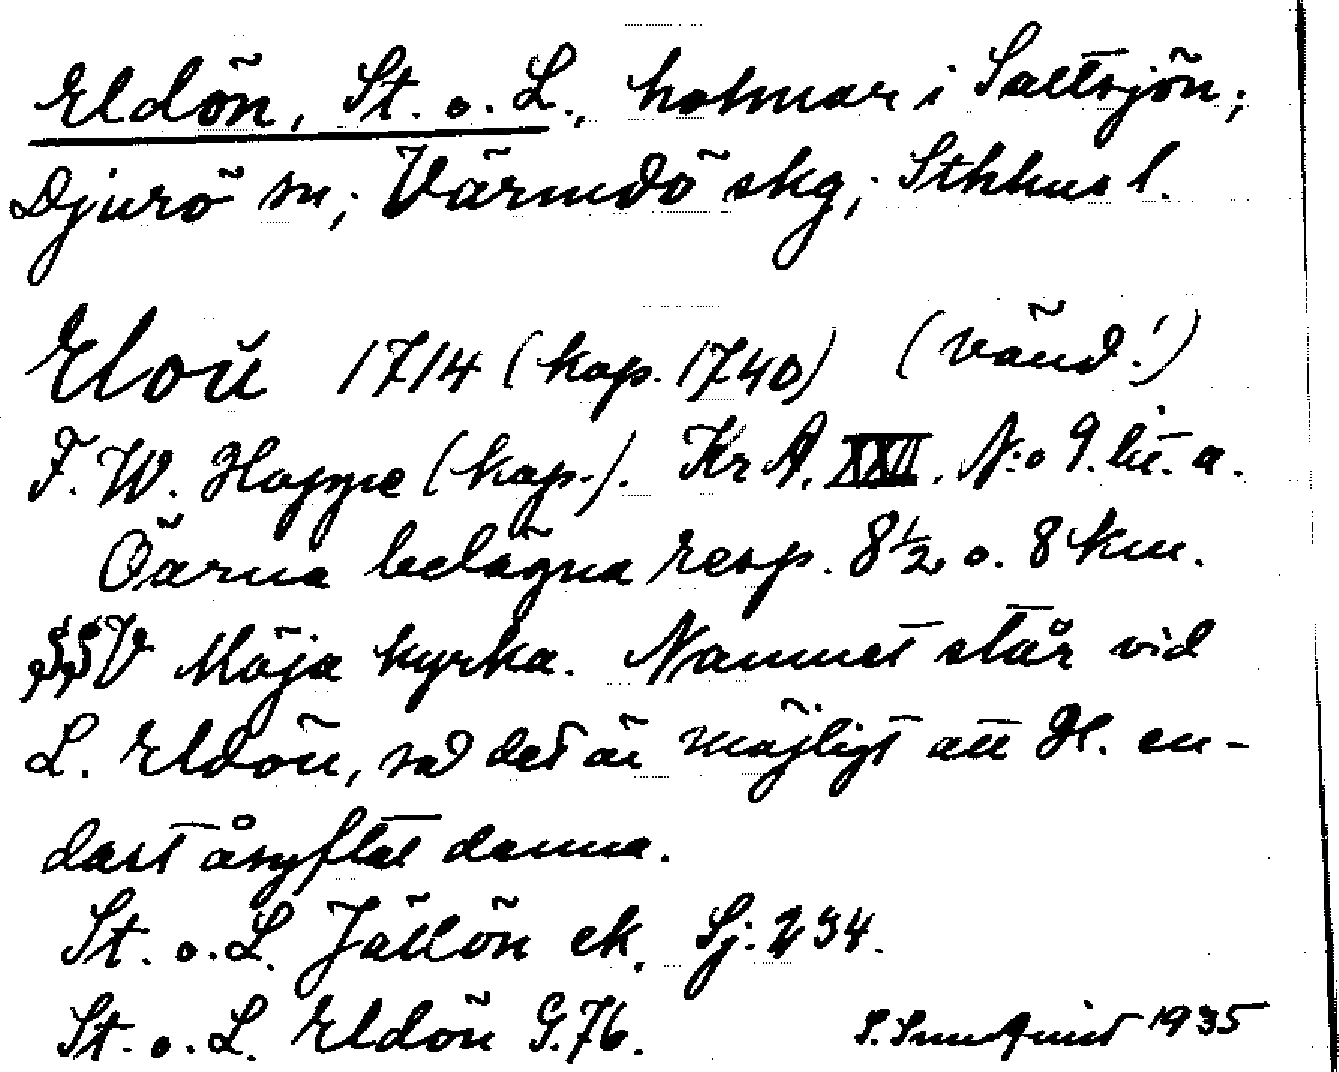 Eldön, St. o. L., holmar i Saltsjön;
Djurö sn; Värmdö skg; Sthlms l.
Eloü 1714 (kop. 1740) (vänd!)
F. W. Hoppe (kop.). Kr A. XXII. N:o 9. lit. a.
Öarna belägna resp. 8½ o. 8 km.
SSV Möja kyrka. Namnet står vid
L. Eldön, så det är möjligt att H. en-
dast åsyftat denna.
St. o. L. Jällön ek. Sj. 234.
St. o. L. Eldön G. 76. 1935